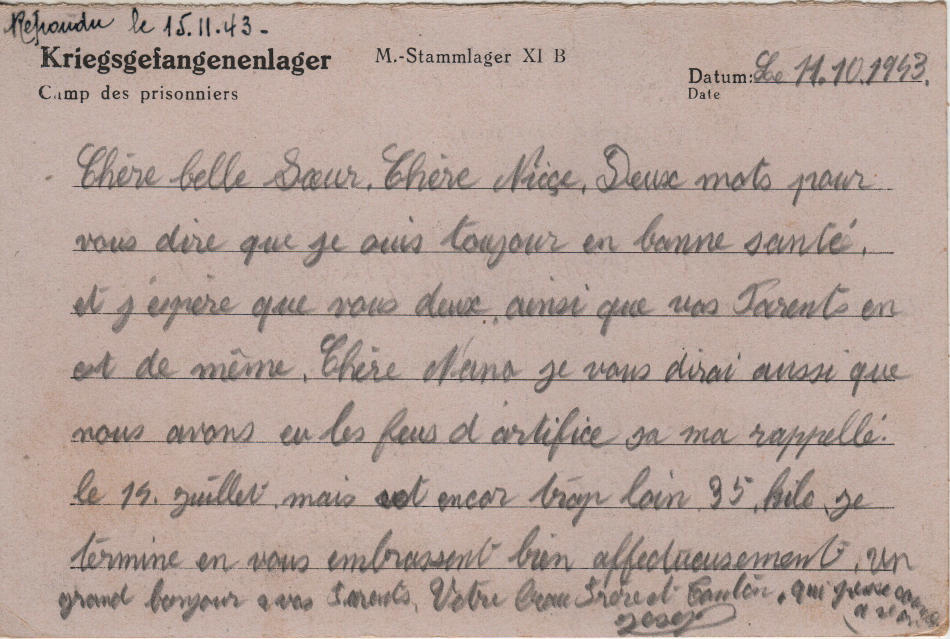 Repondu le 15.11.43-
Kriegsgefangenenlager M.-Stammlager XI B
Datum: Le 11.10.1943.
Camp des prisonniers Date
Chère belle Sœur, Chère Nièçe, Deux mots pour
vous dire que je suis toujour en bonne santé,
et j'éspère que vous deux, ainsi que vos Parents en
est de même, Chère Nano je vous dirai aussi que
nous avons eu les feus d'artifice sa ma rappellé.
le 14. juillet, mais est encor trop loin 35 kilo, je
termine en vous embrassent bien affectueusement, Un
grand bonjour a vos Parents, Votre Beau Frère et Tonton, qui pense
a vous